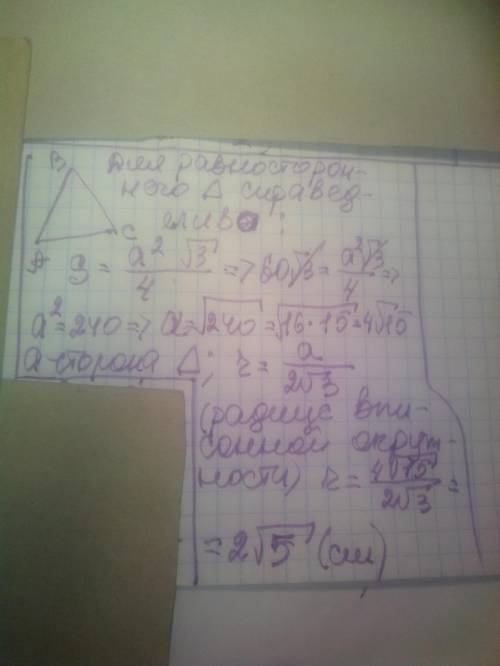 B Для равносторон-
него Δ справед-
ливо:
A C S = a² √3 / 4 => 60√3 = a²√3 / 4 =>
a² = 240 => a = √240 = √16·15 = 4√15
a-сторона Δ; r = a / 2√3
(радиус впи-
санной окруж-
ности) r = 4√15 / 2√3 =
= 2√5 (см)